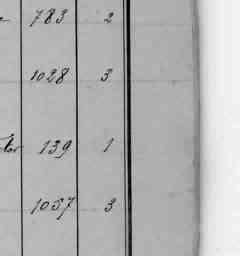 783 2
1028 3
139 1
1057 3